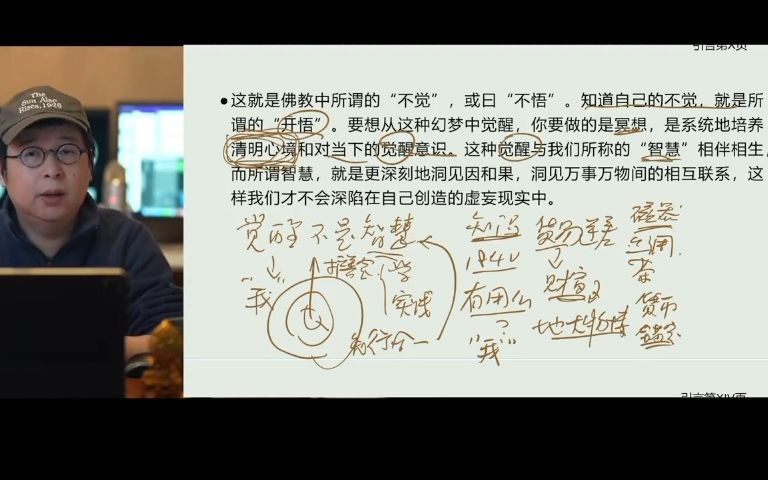 The
Sun Also
Rises, 1926
引言第X页
●这就是佛教中所谓的“不觉”，或曰“不悟”。知道自己的不觉，就是所
谓的“开悟”。要想从这种幻梦中觉醒，你要做的是冥想，是系统地培养
清明心境和对当下的觉醒意识。这种觉醒与我们所称的“智慧”相伴相生，
而所谓智慧，就是更深刻地洞见因和果，洞见万事万物间的相互联系，这
样我们才不会深陷在自己创造的虚妄现实中。
觉醒不是智慧
“我”
学
实践
知行合一
知识
1840
有用么
？
“我”
货币
地大物博
茶
货币
引言第XIV页